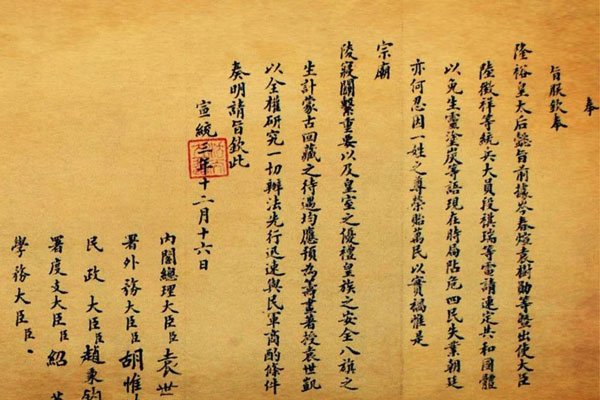 奉
旨朕欽奉
隆裕皇太后懿旨前據岑春煊袁樹勛等暨出使大臣
陸徵祥等統兵大員段祺瑞等電請速定共和國體
以免生靈塗炭等語現在時局阽危四民失業朝廷
亦何忍因一姓之尊榮貽萬民以實禍惟是
宗廟
陵寢關繫重要以及皇室之優禮皇族之安全八旗之
生計蒙古回藏之待遇均應預為籌畫著授袁世凱
以全權研究一切辦法先行迅速與民軍商酌條件
奏明請旨欽此
宣統三年十二月十六日
內閣總理大臣臣袁世
署外務大臣臣胡惟
民政大臣臣趙秉鈞
署度支大臣臣紹
學務大臣臣